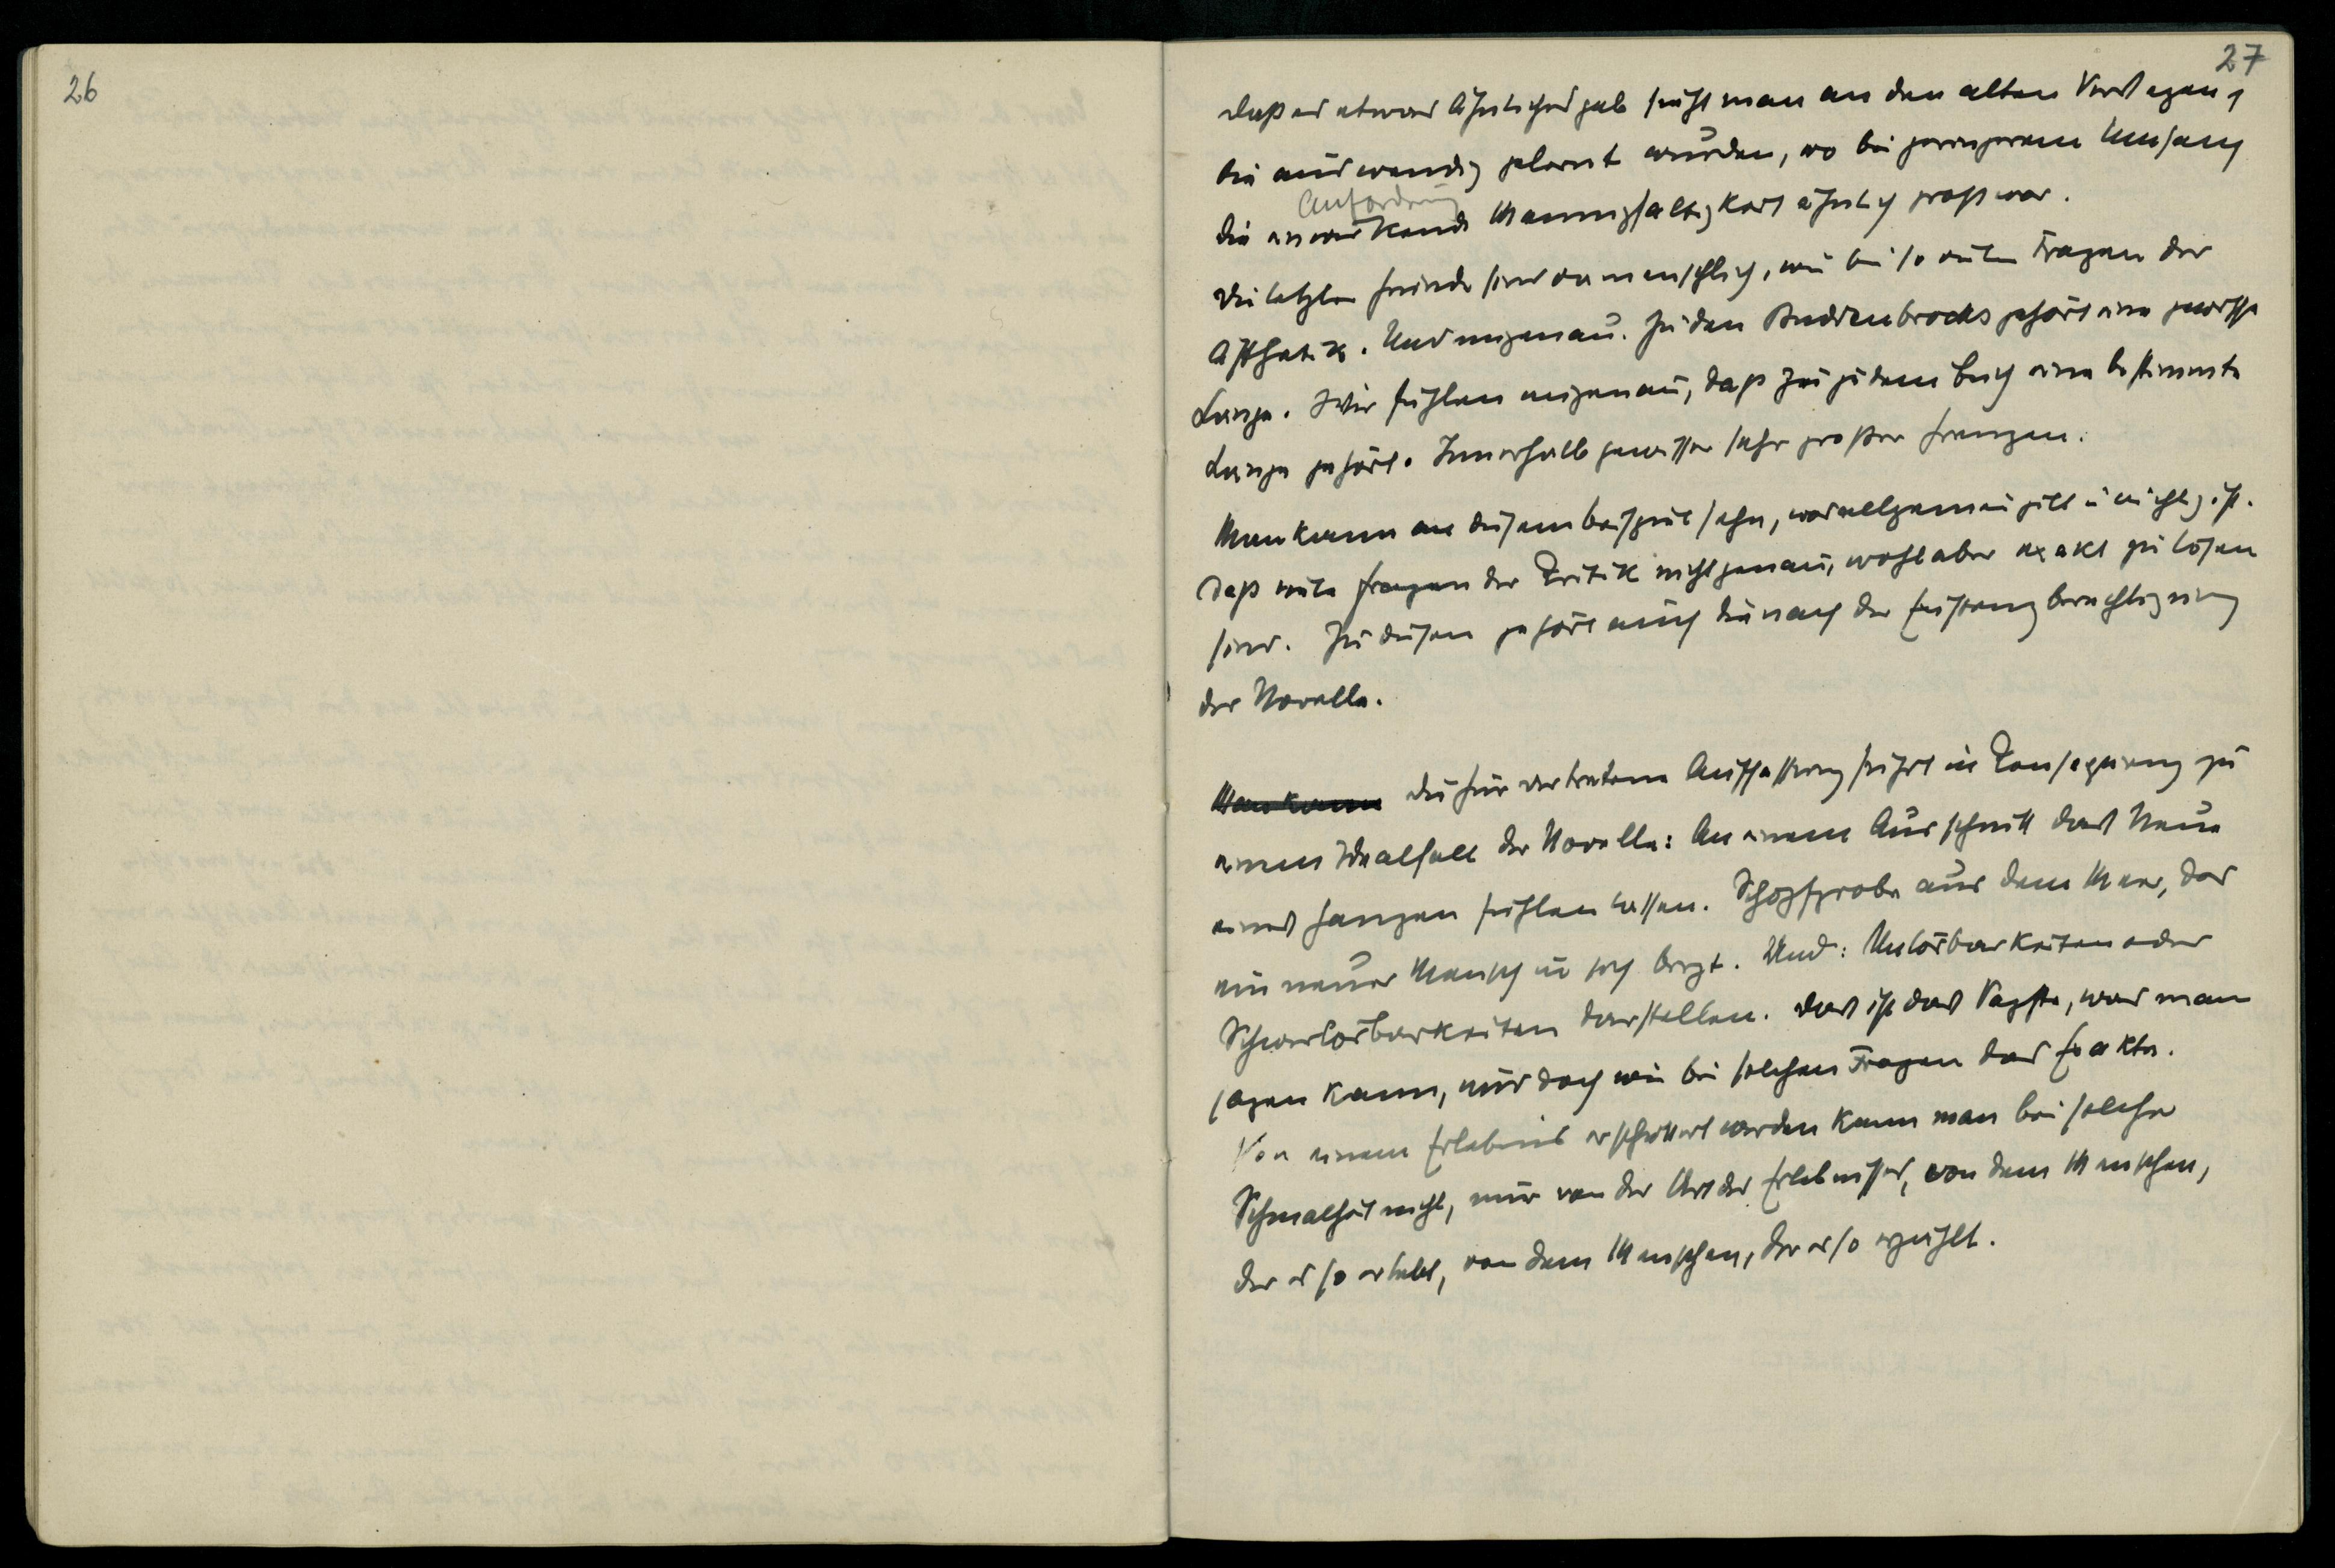 26
27
Daß es etwas Ähnliches gab sieht man an den alten Versepen,
die auswendig gelernt wurden, wo bei geringerem Umfang
Anforderung
die einwirkende Mannigfaltigkeit ähnlich groß war.
Die letzten Gründe sind da menschlich, wie bei so vielen Fragen der
Ästhetik. Und ungenau. Zu den Buddenbrocks gehört eine gewisse
Länge. Wir fühlen ungenau, daß zu jedem Buch eine bestimmte
Länge gehört. Innerhalb gewisser sehr großer Grenzen.
Man kann an diesem Beispiel sehn, was allgemein gilt u wichtig ist.
Daß viele Fragen der Kritik nicht genau, wohl aber exakt zu lösen
sind. Zu diesen gehört auch die nach der Existenzberechtigung
der Novelle.
Man kann Die hier vertretene Auffassung führt in Konsequenz zu
einem Idealfall der Novelle: An einem Ausschnitt das Neue
eines Ganzen fühlen lassen. Schöpfprobe aus dem Meer, das
ein neuer Mensch in sich birgt. Und: Unlösbarkeiten oder
Schwerlösbarkeiten darstellen. Das ist das Vagste, was man
sagen kann, und doch wie bei solchen Fragen das Exakte.
Von einem Erlebnis erschüttert werden kann man bei solcher
Schmalheit nicht, nur von der Art des Erlebnisses, von dem Menschen,
der es so erlebt, von dem Menschen, der es so erzählt.